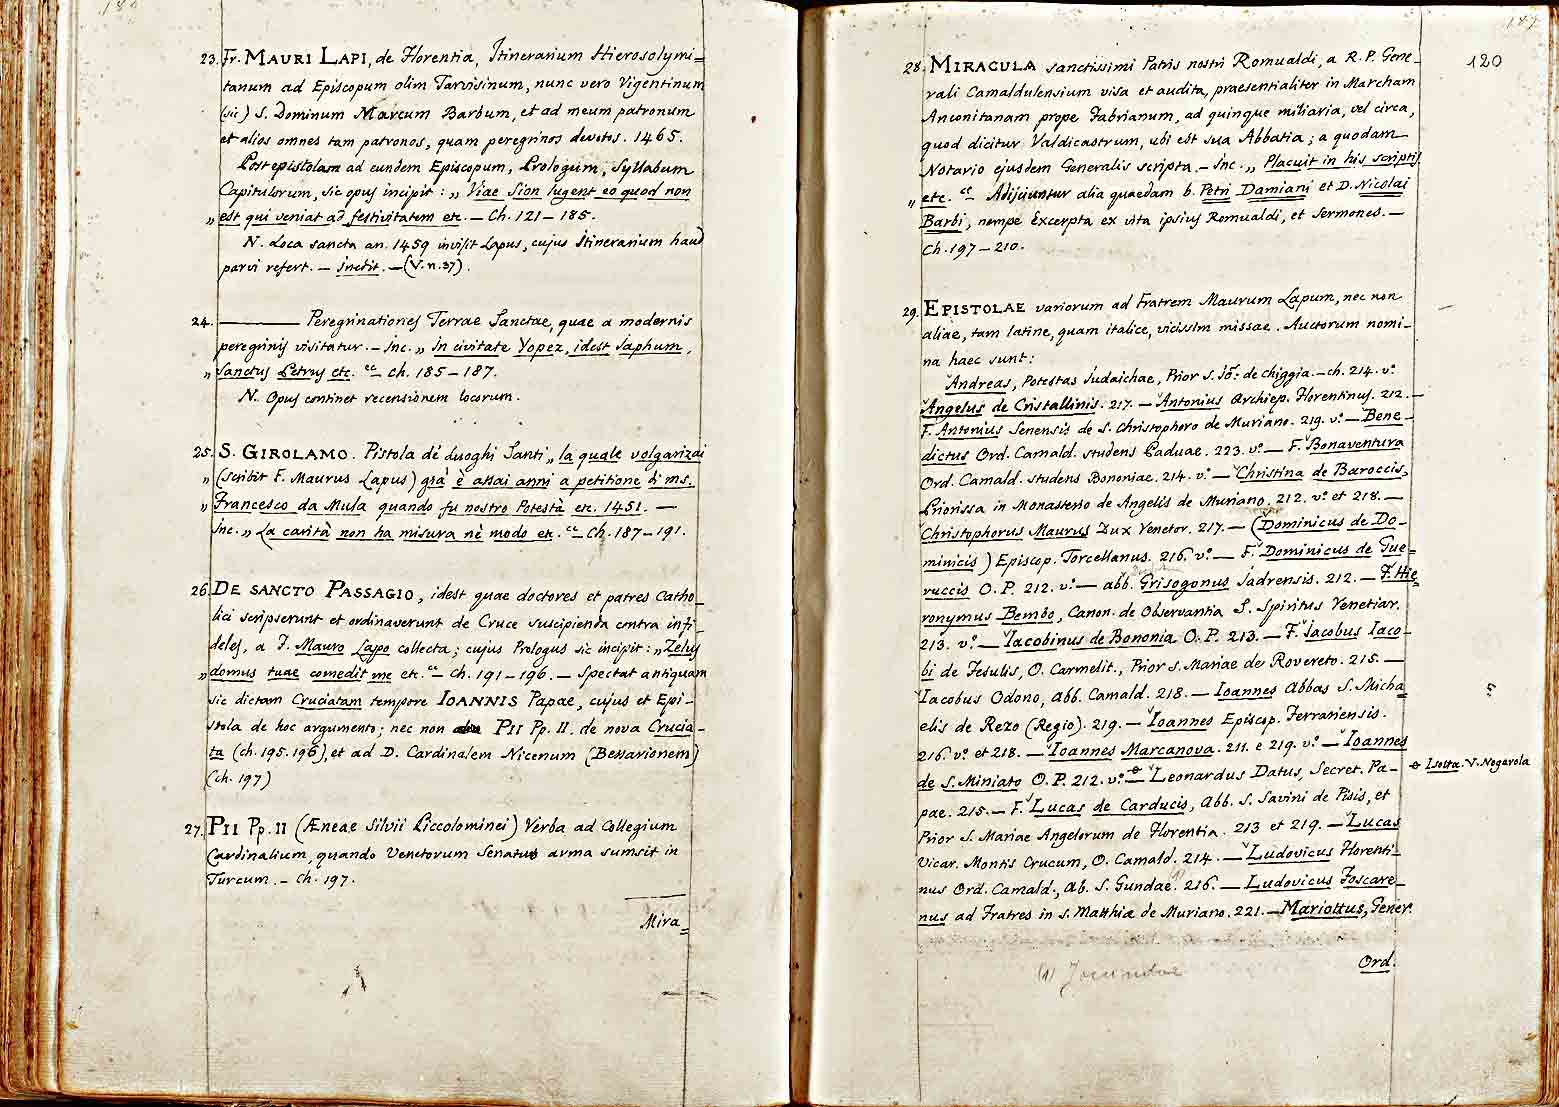 23. Fr. MAURI LAPI, de Florentia, Itinerarium Hierosolymi=
tanum ad Episcopum olim Tarvisinum, nunc vero Vigentinum
(sic) S. Dominum Marcum Barbum, et ad meum patronum
et alios omnes tam patronos, quam peregrinos devotos. 1465.
Post epistolam ad eundem Episcopum, Prologum, Syllabum
Capitulorum, sic opus incipit: „ Viae Sion lugent eo quod non
„ est qui veniat ad festivitatem etc. — Ch. 121 – 185.
N. Loca sancta an. 1459 invisit Lapus, cujus Itinerarium haud
parvi refert. — inedit. — (V. n. 37).
24. ——— Peregrinationes Terrae Sanctae, quae a modernis
peregrinis visitatur. — Inc. „ In civitate Yopez, idest Saphum,
„ Sanctus Petrus etc. “ — Ch. 185 – 187.
N. Opus continet recensionem locorum.
25. S. GIROLAMO. Pistola dé duoghi Santi „ la quale volgarizai
„ (scribit F. Maurus Lapus) già è assai anni a petitione di ms.
„ Francesco da Mula quando fu nostro Potestà etc. 1451. —
Inc. „ La carità non ha misura nè modo etc. “ — Ch. 187 – 191.
26. DE SANCTO PASSAGIO, idest quae doctores et patres Catho_
lici scripserunt et ordinaverunt de Cruce suscipienda contra infi_
deles, a F. Mauro Lapo collecta; cujus Prologus sic incipit: „ Zelus
„ domus tuae comedit me etc. “ — Ch. 191 – 196. — Spectat antiquam
sic dictam Cruciatam tempore IOANNIS Papae, cujus et Epi_
stola de hoc argumento; nec non PII Pp. II. de nova Crucia_
ta (ch. 195. 196), et ad D. Cardinalem Nicenum (Bessarionem)
(ch. 197)
27. PII Pp. II (Æneae Silvii Piccolominei) Verba ad Collegium
Cardinalium, quando Venetorum Senatus arma sumsit in
Turcum. — Ch. 197.
Mira=
120
28. MIRACULA sanctissimi Patris nostri Romualdi, a R. P. Gene_
rali Camaldulensium visa et audita, praesentialiter in Marcham
Anconitanam prope Fabrianum, ad quinque miliaria, vel circa,
quod dicitur Valdicastrum, ubi est sua Abbatia; a quodam
Notario ejusdem Generalis scripta — Inc. „ Placuit in his scriptis
„ etc. “ — Adijciuntur alia quaedam b. Petri Damiani et D. Nicolai
Barbi, nempe Excerpta ex vita ipsius Romualdi, et Sermones. —
Ch. 197 – 210.
29. EPISTOLAE variorum ad Fratrem Maurum Lapum, nec non
aliae, tam latine, quam italice, vicissim missae. Auctorum nomi_
na haec sunt:
Andreas, Potestas Judaichae, Prior S. Jō: de Chiggia. — ch. 214. v.º
Angelus de Cristallinis. 217. — Antonius Archiep. Florentinus. 212. —
F. Antonius Senensis de S. Christophoro de Muriano. 219. v.º — Bene_
dictus Ord. Camald. studens Paduae. 223. v.º — F. Bonaventura
Ord. Camald. studens Bononiae. 214. v.º — Christina de Baroccis,
Priorissa in Monasterio de Angelis de Muriano. 212. v.º et 218. —
Christophorus Maurus Dux Venetor. 217. — (Dominicus de Do_
minicis) Episcop. Torcellanus. 216. v.º — F. Dominicus de Gue_
ruccis O. P. 212. v.º — abb. Grisogonus Jadrensis. 212. — F. Hie_
ronymus Bembo, Canon. de Observantia S. Spiritus Venetiar.
213. v.º — Iacobinus de Bononia O. P. 213. — F. Iacobus Iaco_
bi de Fesulis, O. Carmelit., Prior S. Mariae de Rovereto. 215. —
Iacobus Odono, Abb. Camald. 218. — Ioannes Abbas S. Micha_
elis de Rezo (Regio). 219. — Ioannes Episcop. Ferrariensis.
216. v.º et 218. — Ioannes Marcanova. 211. e 219. v.º — Ioannes
de S. Miniato O. P. 212. v.º ⊕ Leonardus Datus, Secret. Pa_
⊕ Isotta. V. Nogarola
pae. 215. — F. Lucas de Carducis, Abb. S. Savini de Pisis, et
Prior S. Mariae Angelorum de Florentia. 213 et 219. — Lucas
Vicar. Montis Crucum, O. Camald. 214. — Ludovicus Florenti_
nus Ord. Camald., Ab. S. Gundae. (1) 216. — Ludovicus Foscare_
nus ad Fratres in S. Matthia de Muriano. 221. — Mariottus, Gener.
(1) Jocundae
Ord.